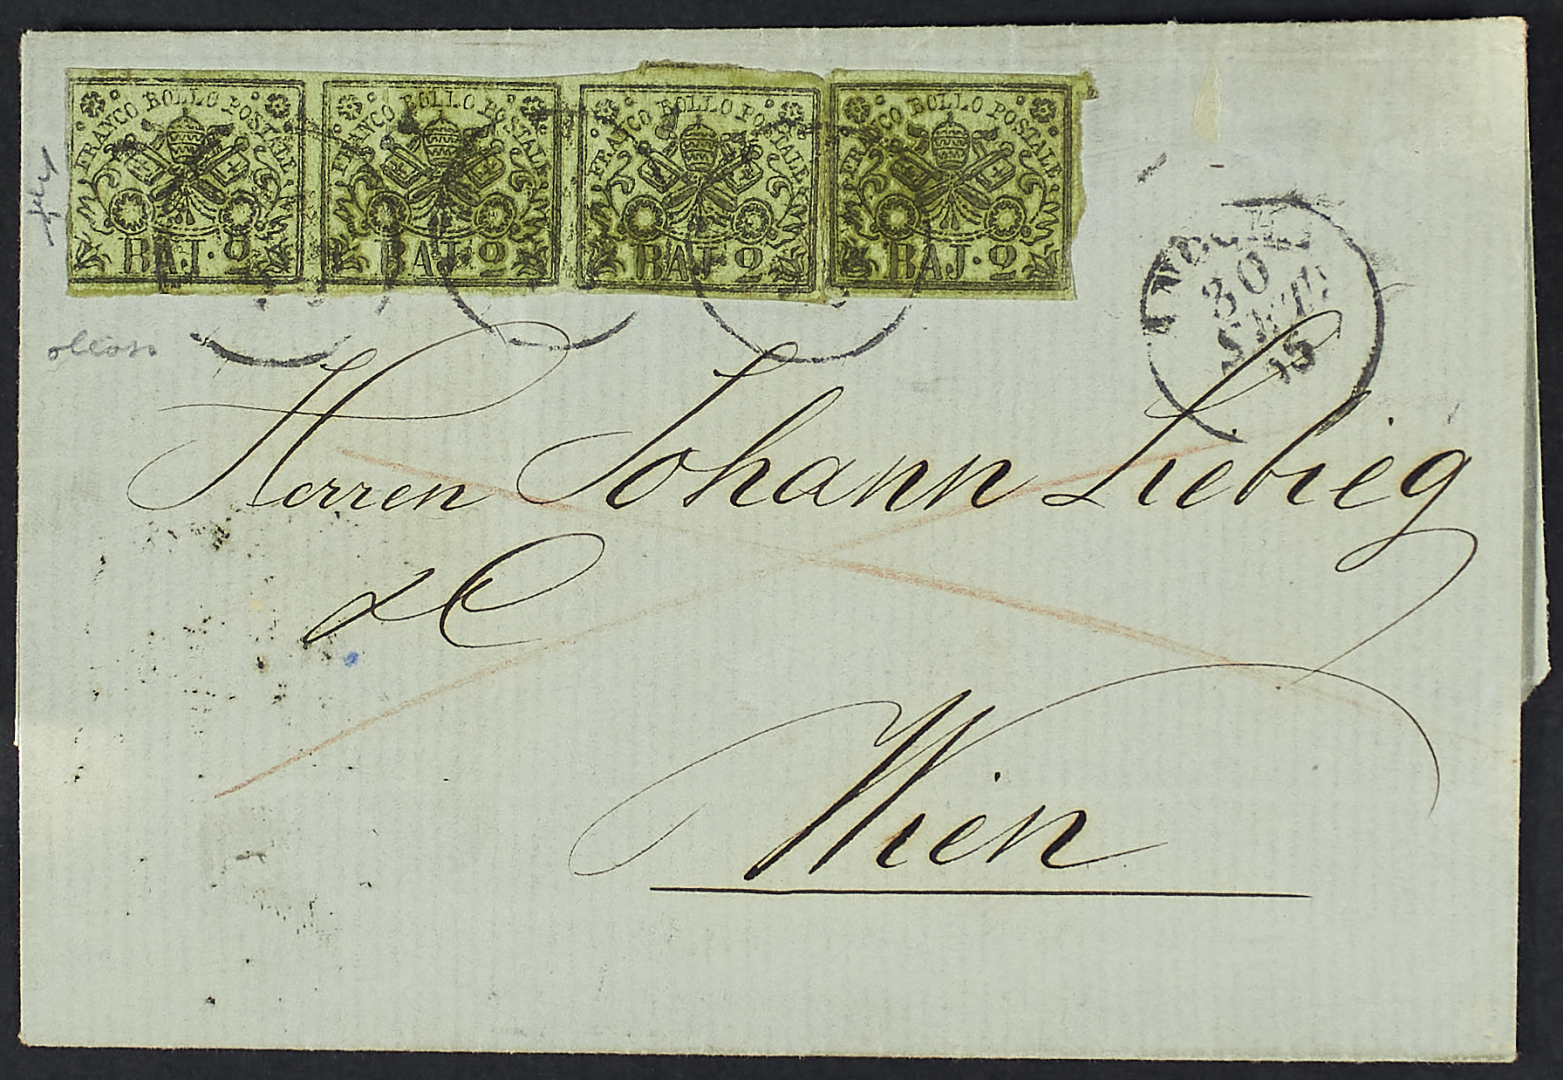 FRANCO BOLLO POSTALE FRANCO BOLLO POSTALE FRANCO BOLLO POSTALE FRANCO BOLLO POSTALE
BAJ·2 BAJ·2 BAJ·2 BAJ·2
30
SETT
Herren Johann Liebieg
& C
Wien